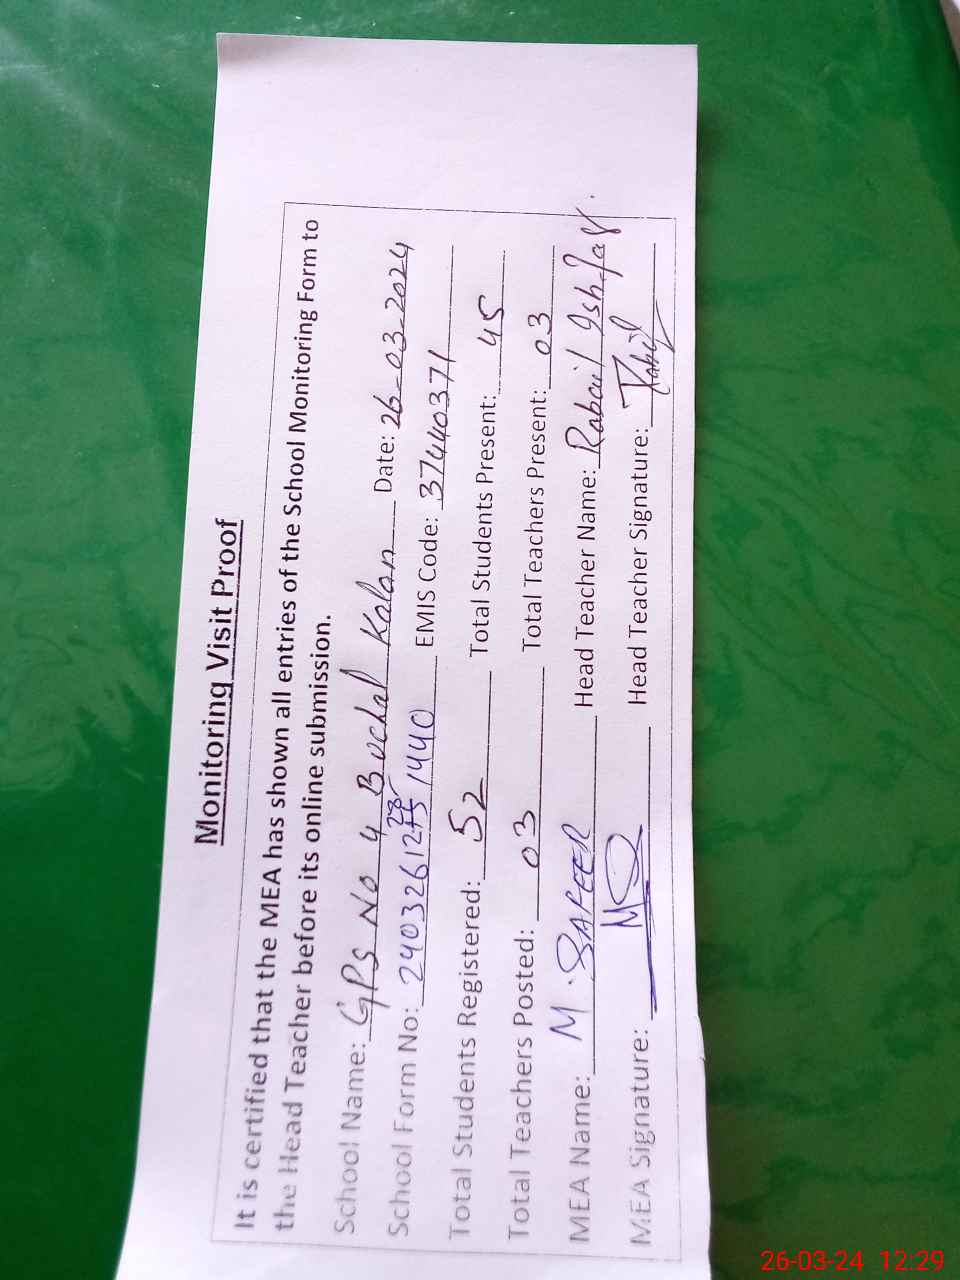 Monitoring Visit Proof
It is certified that the MEA has shown all entries of the School Monitoring Form to
the Head Teacher before its online submission.
School Name: GPS No 4 Buchal Kalan Date: 26-03-2024
School Form No: 24032612 28 1440 EMIS Code: 37440371
Total Students Registered: 52 Total Students Present: 45
Total Teachers Posted: 03 Total Teachers Present: 03
MEA Name: M. SAFEER Head Teacher Name: Rabail Ishfaq.
MEA Signature: MS Head Teacher Signature: Rabail
26-03-24 12:29